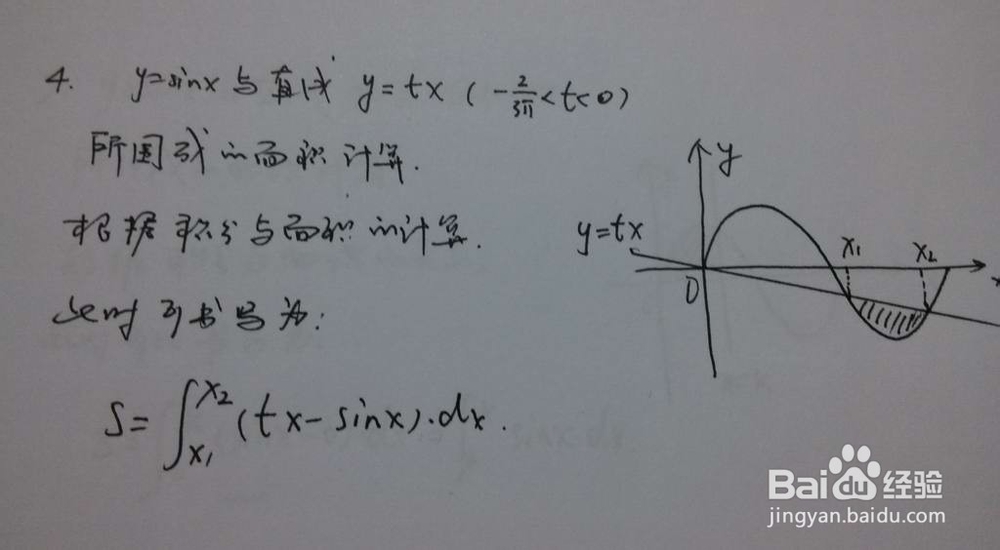 4. y=sinx与直线 y=tx (-2/3π<t<0)
所围成的面积计算.
根据积分与面积的计算.
此时可书写为:
S=∫x₁x₂(tx-sinx).dx.
y
y=tx
x₁ x₂
0
x
Baidu经验
jingyan.baidu.com